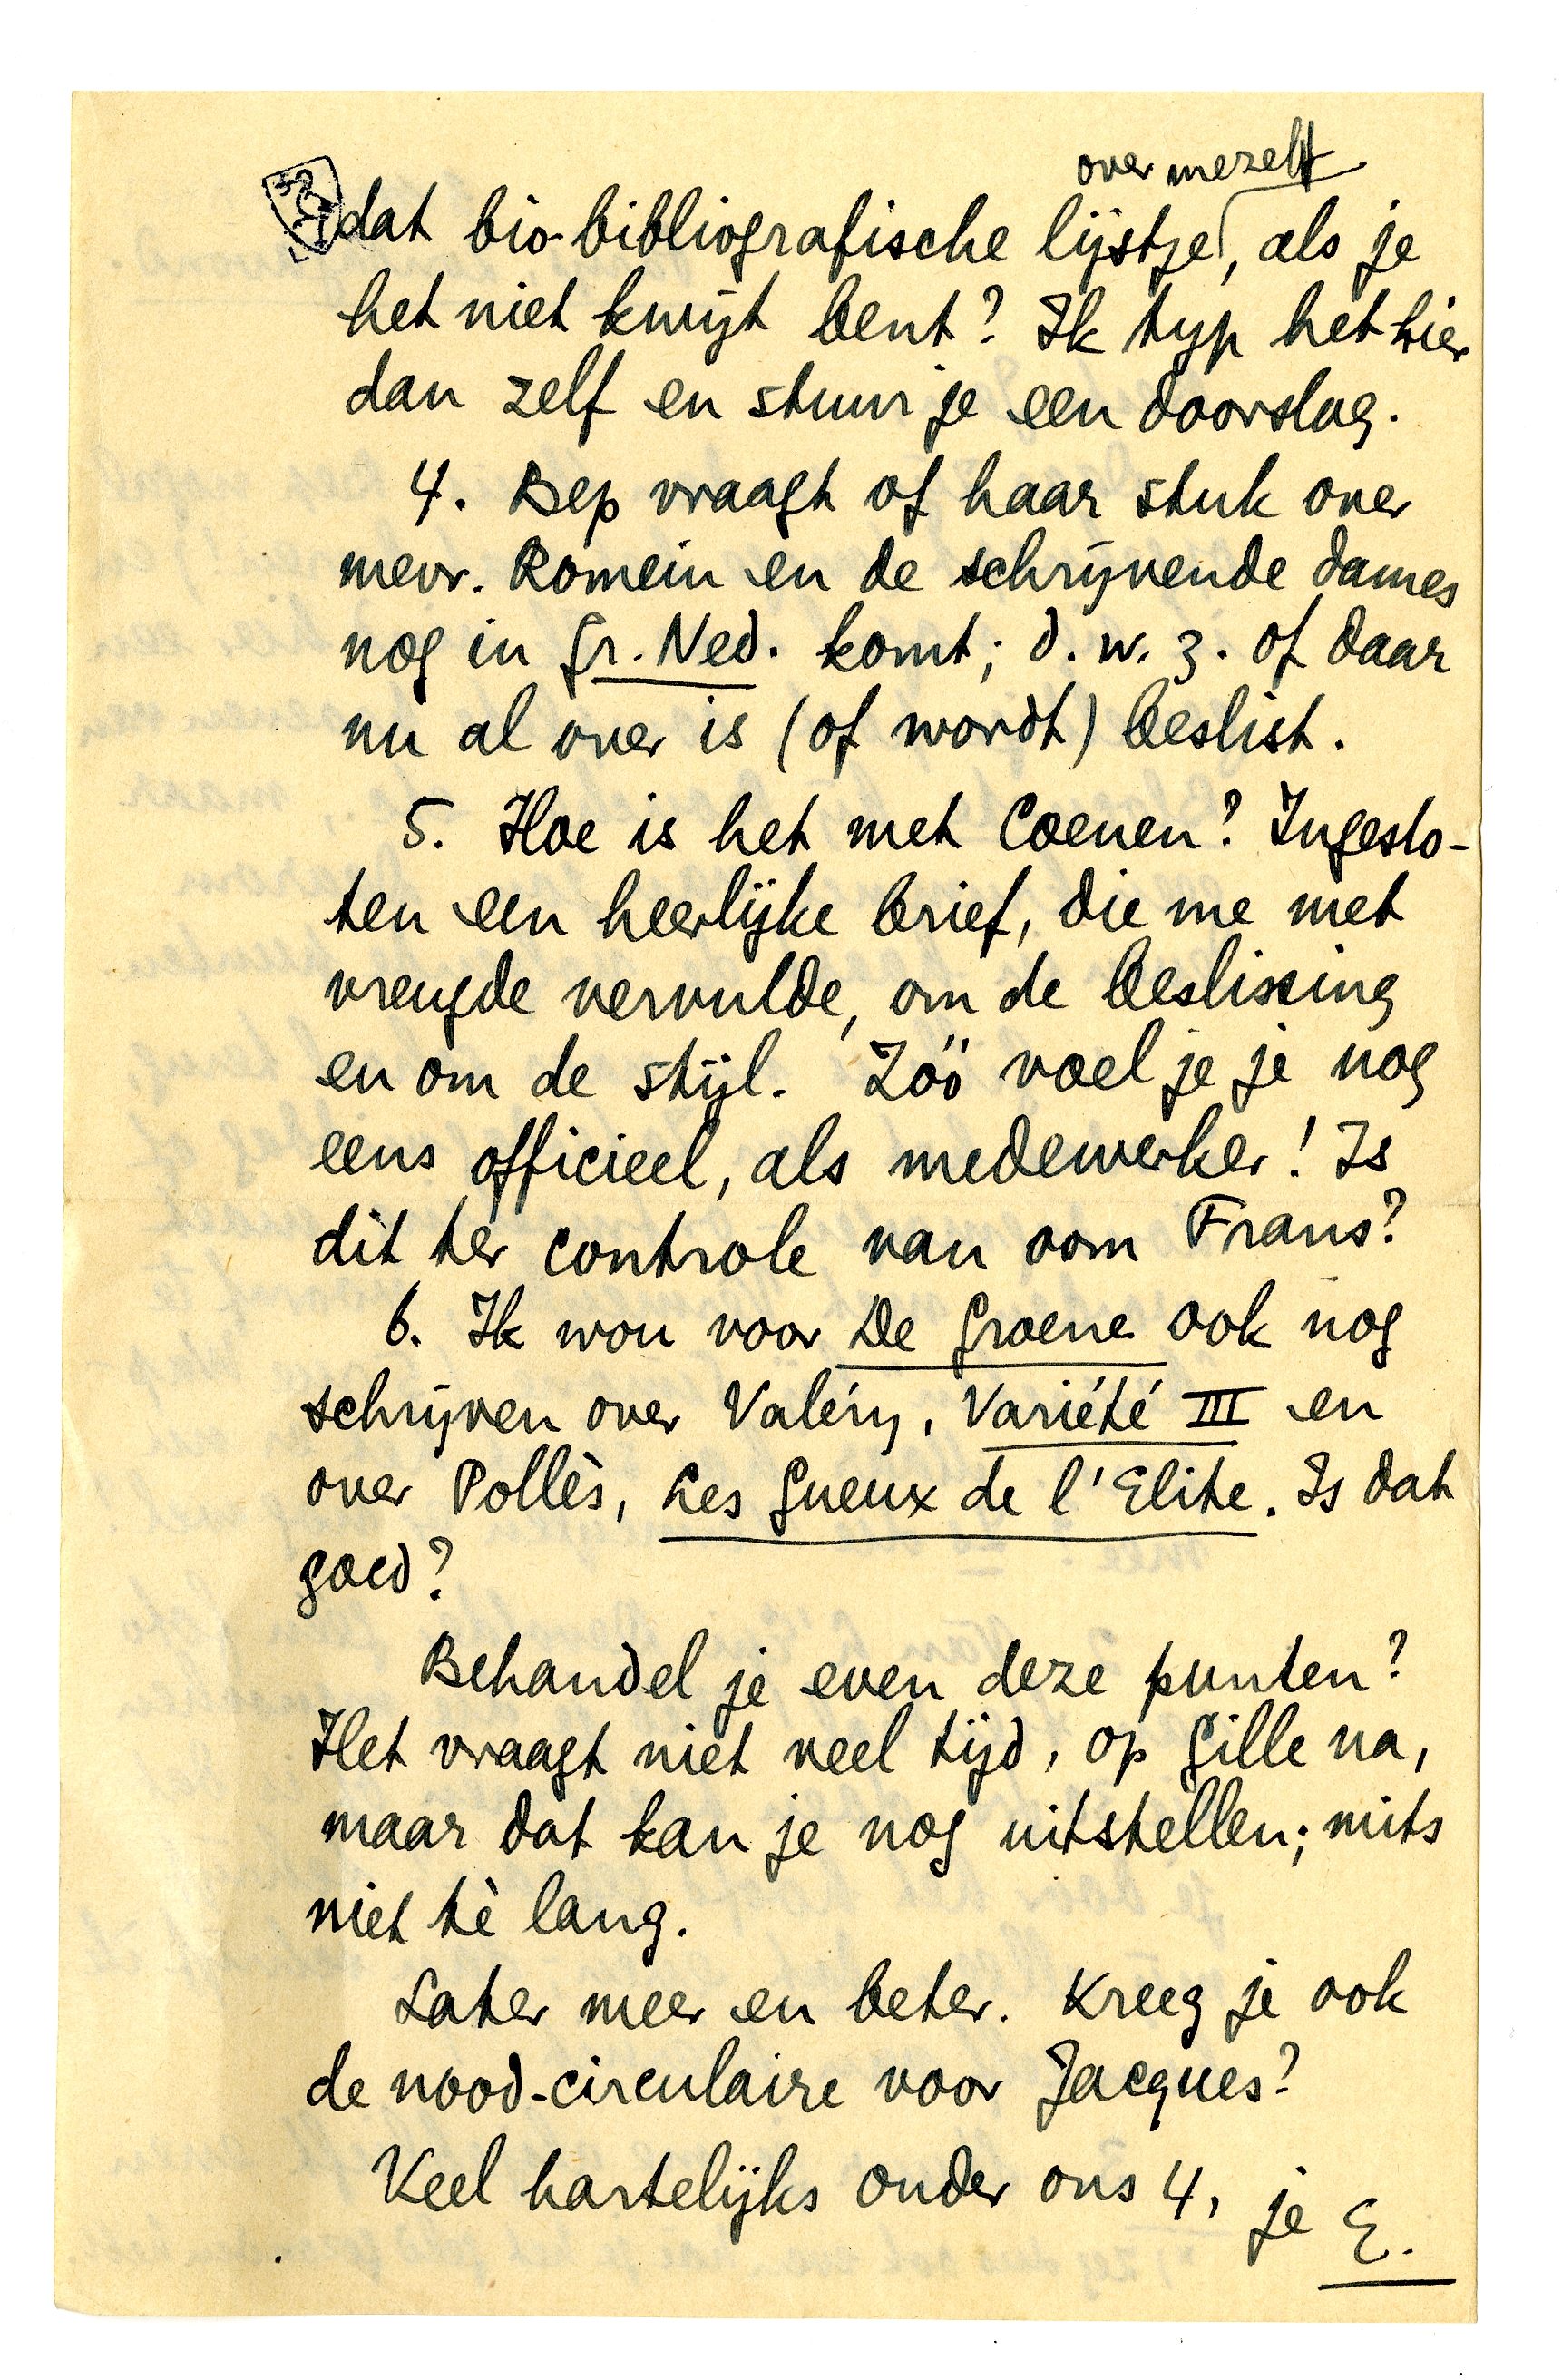 over mezelf
dat bio-bibliografische lijstje, als je
het niet kwijt bent? Ik typ het hier
dan zelf en stuur je een doorslag.
4. Bep vraagt of haar stuk over
mevr. Romein en de schrijvende dames
nog in Gr. Ned. komt; d.w.z. of daar
nu al over is (of wordt) beslist.
5. Hoe is het met Coenen? Ingeslo-
ten een heerlijke brief, die me met
vreugde vervulde, om de beslissing
en om de stijl. Zóó voel je je nog
eens officieel, als medewerker! Is
dit ter controle van oom Frans?
6. Ik wou voor De Groene ook nog
schrijven over Valéry, Variété III en
over Pollès, Les Gueux de l'Elite. Is dat
goed?
Behandel je even deze punten?
Het vraagt niet veel tijd, op Gille na,
maar dat kan je nog uitstellen; mits
niet tè lang.
Later meer en beter. Kreeg je ook
de nood-circulaire voor Jacques?
Veel hartelijks onder ons 4, je E.